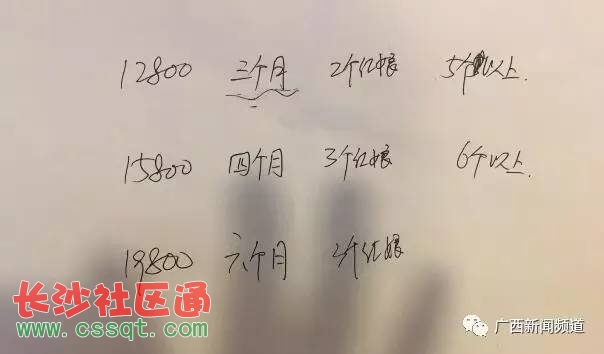 12800 三个月 2个红娘 5个以上.
15800 四个月 3个红娘 6个以上.
19800 六个月 3个红娘
长沙社区通
www.cssqt.com
广西新闻频道